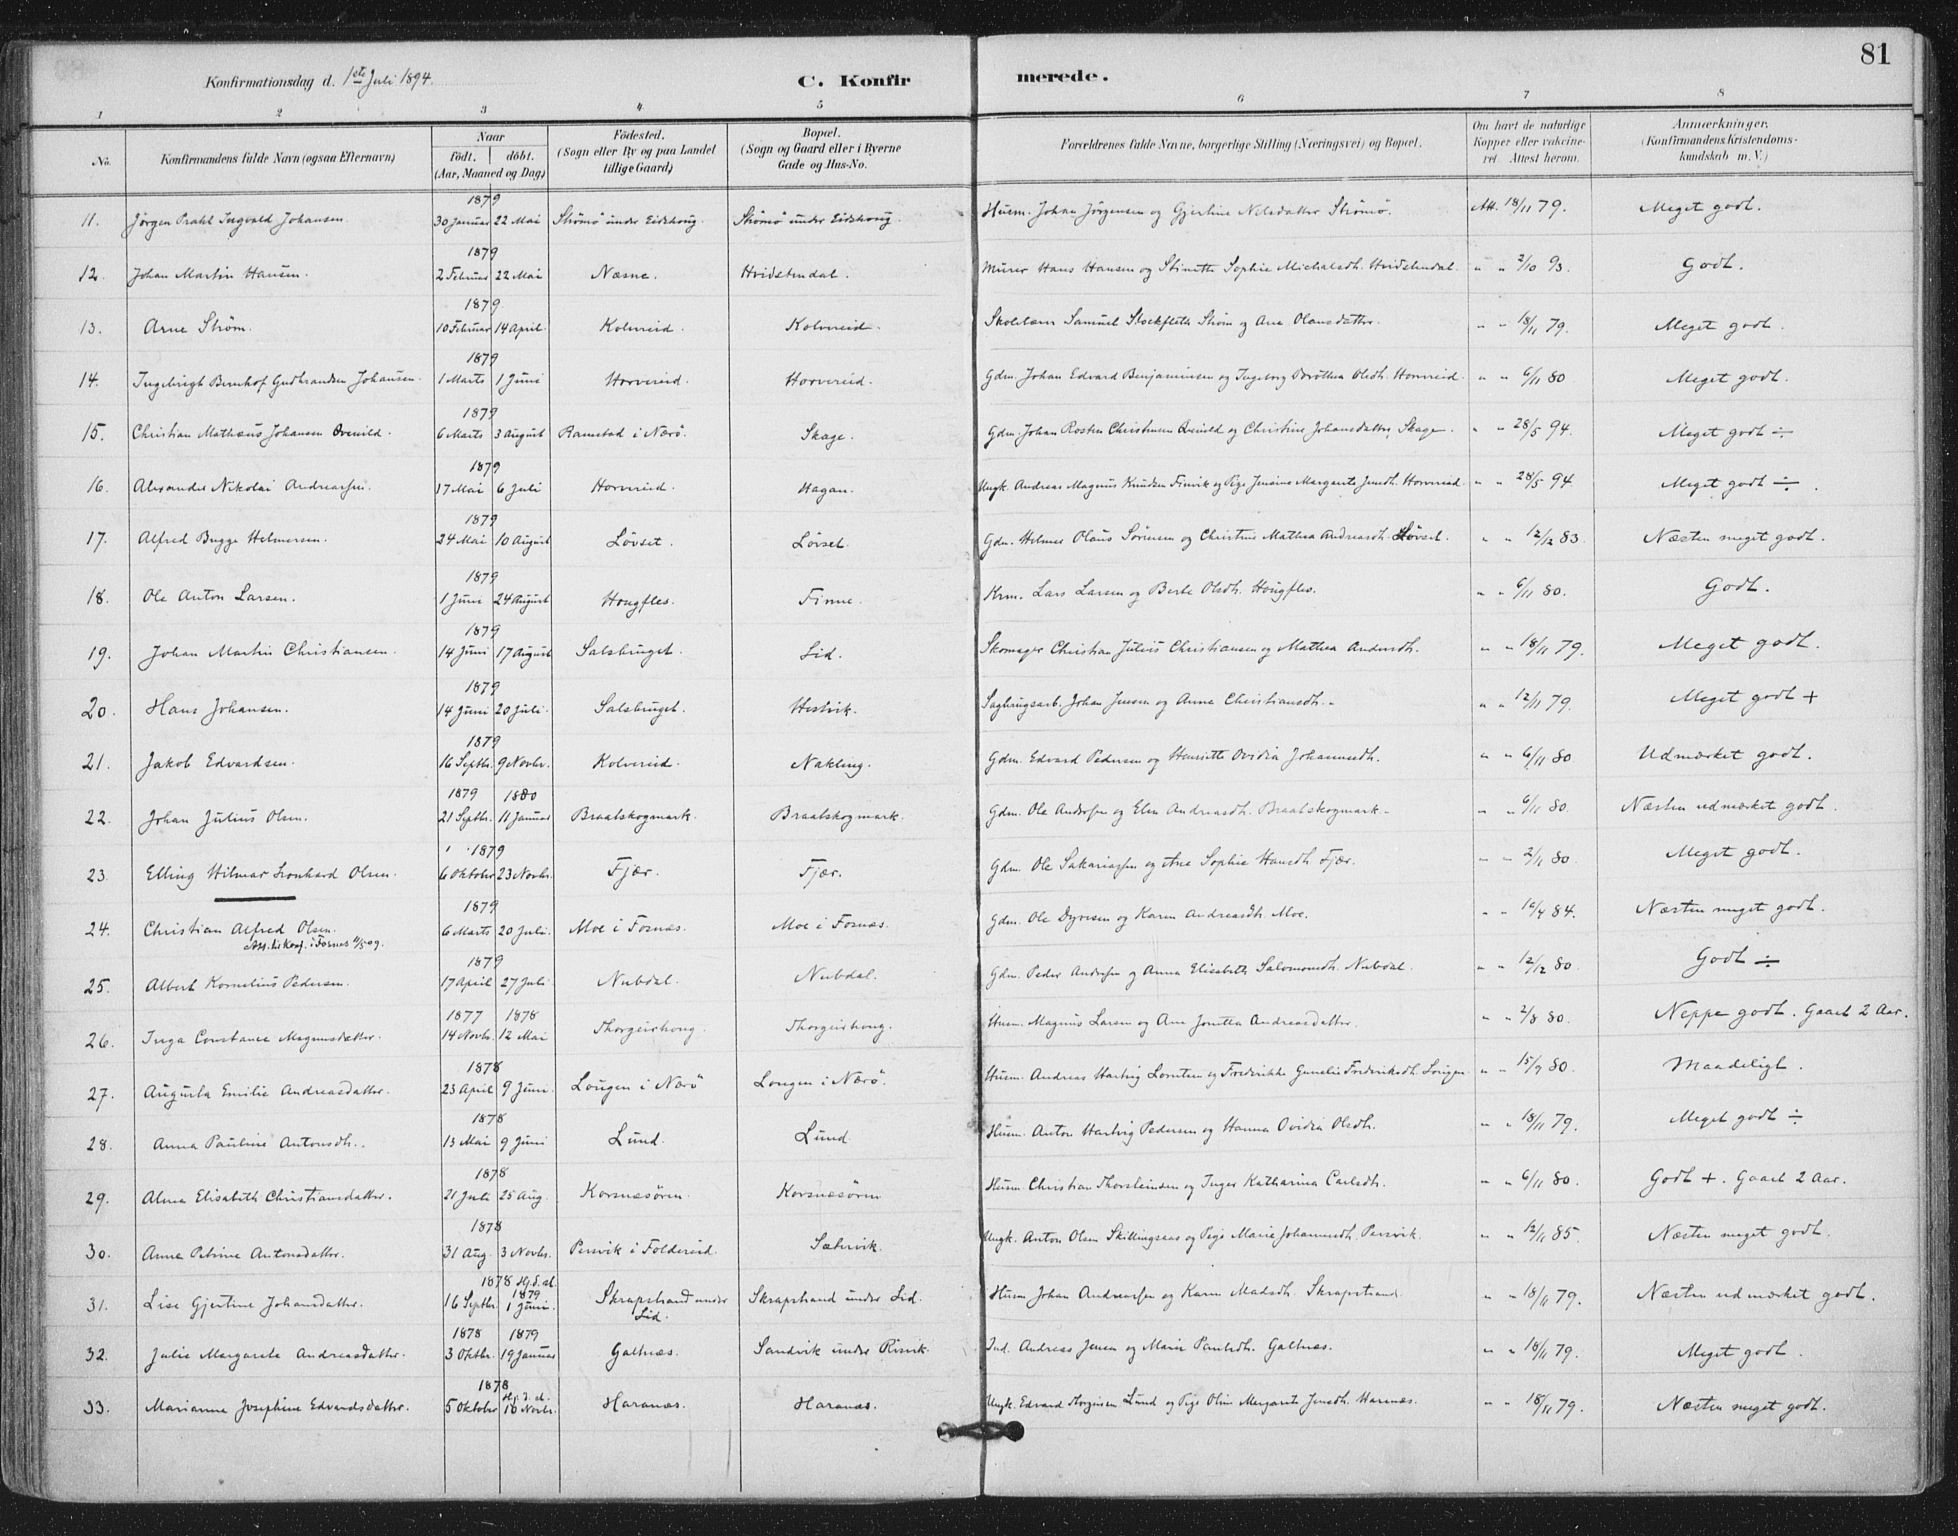 81
Konfirmationsdag d. 1ste Juli 1894.
C. Konfir merede.
1 2 3 4 5 6 7 8
No. Konfirmandens fulde Navn (ogsaa Efternavn) Naar födt. döbt. (Aar, Maaned og Dag) Födested. (Sogn eller By og paa Landet tillige Gaard) Bopæl. (Sogn og Gaard eller i Byerne Gade og Hus-No. Forældrenes fulde Navne, borgerlige Stilling (Næringsvei) og Bopæl. Om havt de naturlige Kopper eller vakcineret. Attest herom. Anmærkninger. (Konfirmandens Kristendomskundskab m. V.)
1879
11. Jørgen Prahl Ingvald Johansen. 30 Januar 22 Mai Strömö under Eidshoug. Strömö under Eidshoug. Husm. Johan Jörgensen og Gjertine Nilsdatter Strömö. Att. 18/11 79. Meget godt.
1879
12. Johan Martin Hansen. 2 Februar 22 Mai Næsne. Hvidstendal. Murer Hans Hansen og Sophie Michalsdt. Hvidstendal. " " 2/10 93. Godt.
1879
13. Arne Strøm. 10 Februar 14 April. Kolvereid. Kolvereid. Samuel Stockfleth Strøm og Ane Olausdatter. " " 18/11 79. Meget godt.
1879
14. Ingebrigt Gudbrandsen Johansen. 1 Marts 1 Juni Horvereid. Horvereid. Gdm. Johan Edvard Benjaminsen og Ingeborg Dorothea Olsdt. Horvereid. " " 6/11 80 Meget godt.
1879
15. Christian Mathæus Johansen 6 Marts 3 August Ramstad i Nærö. Skage. Gdm. Johan Christensen og Christine Johansdatter, Skage. " " 28/5 94. Meget godt ÷
1879
16. Alexander Nikolai Andreassen. 17 Mai 6 Juli Horvereid. Hagan. Ungk. Andreas Magnus Knudsen Finvik og Pige Margarete Horvereid. " " 28/5 94 Meget godt ÷.
1879
17. Alfred Bugge Helmersen. 24 Mai 10 August Lövset. Lövset. Gdm. Helmer Olaus Sörensen og Christine Mathea Andreasdt. Lövset. " " 12/12 83 Næsten meget godt.
1879
18. Ole Anton Larsen. 1 Juni 24 August Hougfles. Finne. Lars Larsen og Olsdt. Hougfles. " " 6/11 80. Godt.
1879
19. Johan Martin Christiansen. 14 Juni 17 August Salsbruget. Lid. Skomager Christian Julius Christiansen og Mathea Andersdt. " " 18/11 79. Meget godt.
1879
20. Hans Johansen. 14 Juni 20 Juli. Salsbruget. Hestvik. Sagbrugsarb. Johan Jensen og Anne Christiansdt. " " 12/11 79. Meget godt +
1879
21. Jakob Edvardsen. 16 Septbr. 9 Novbr. Kolvereid. Nakling. Gdm. Edvard Pedersen og Henriette Ovidia Johannesdt. " " 6/11 80 Udmærket godt.
1879 1880
22. Johan Julius Olsen. 21 Septbr. 11 Januar Braatskogmark. Braatskogmark. Gdm. Ole Andersen og Elen Andreasdt. Braatskogmark. " " 6/11 80 Næsten udmærket godt.
1879
23. Elling Hilmar Leonhard Olsen. 6 Oktober 23 Novbr. Fjær. Fjær. Gdm. Ole Sakariassen og Ane Sophie Hansdt. Fjær. " " 2/11 80. Meget godt.
1879
24. Christian Alfred Olsen. 6 Marts 20 Juli. Moe i Fosnæs. Moe i Fosnæs. Gdm. Ole Dyresen og Karen Andreasdt. Moe. " " 84. Næsten meget godt.
1879
25. Albert Kornelius Pedersen. 17 April 27 Juli Nubdal. Nubdal. Gdm. Peder Andersen og Anna Elisabeth Salomonsdt. Nubdal. " " 12/12 80. Godt ÷
1877 1878
26. Inga Constance Magnusdatter. 14 Novbr. 12 Mai Thorgeirhoug. Thorgeirhoug. Husm. Magnus Larsen og Ane Andreasdatter. " " 2/8 80. Neppe godt. Gaaet 2 Aar.
1878
27. Augusta Emilie Andreasdatter. 23 April 9 Juni. Lougen i Nærö Lougen i Nærö. Husm. Andreas Hartvig Lorntsen og Fredrikke Frederiksdt. Lougen. " " 15/9 80. Maadeligt.
1878
28. Anna Pauline Antonsdt. 13 Mai 9 Juni Lund. Lund. Husm. Anton Hartvig Pedersen og Hanna Ovidia Olsdt. " " 18/11 79. Meget godt ÷
1878
29. Alma Elisabeth Christiansdatter. 21 Juli 25 Aug. Korsnæsören. Korsnæsören Husm Christian Thorsteinsen og Inger Katharina Carlsdt. " " 6/11 80. Godt +. Gaaet 2 Aar.
1878
30. Anna Petrine Antonsdatter. 31 Aug. 3 Novbr. Persvik i Foldereid. Sætervik. Ungk. Anton Olsen Skillingsaas og Pige Marie Johannesdt. Persvik. " " 12/11 85. Næsten meget godt.
1878 Hj. d. al. 1879
31. Lise Gjertine Johansdatter. 16 Septbr. 1 Juni. Skrapstrand under Lid. Skrapstrand under Lid. Husm Johan Andreassen og Karen Madsdt. Skrapstrand " " 18/11 79. Næsten udmærket godt.
1878 1879
32. Julie Margarete Andreasdatter. 3 Oktbr. 19 Januar Galtnæs. Sandvik under Risvik. Ind. Andreas Jensen og Marie Paulsdt. Galtnæs. " " 18/11 79. Meget godt.
1878 Hj. d. al.
33. Marianne Josephine Edvardsdatter. 5 Oktober 10 Novbr. Haranæs. Haranæs. Ungk. Edvard Lund og Pige Oline Margarete Haranæs. " " 18/11 79. Næsten meget godt.